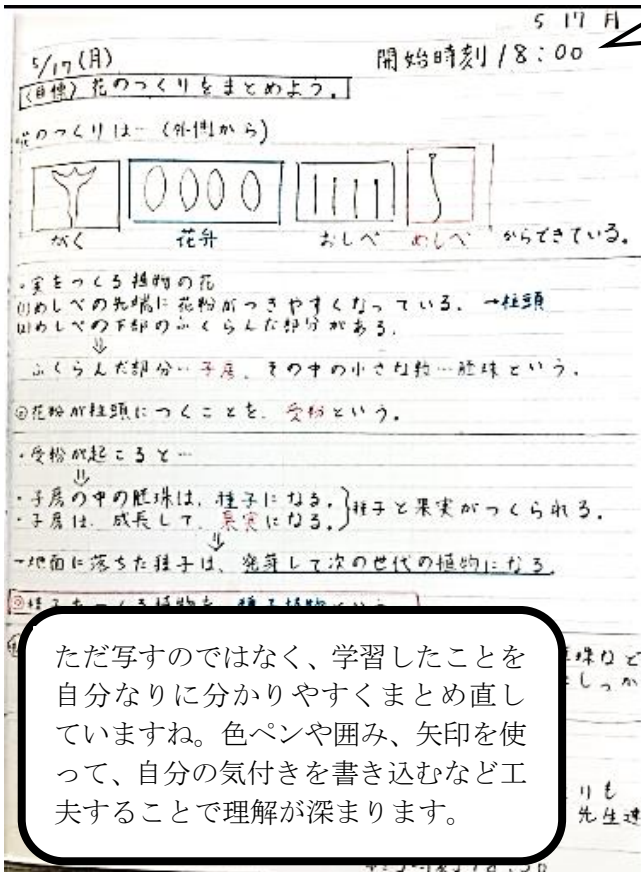 5 17 月
5/17(月) 開始時刻 18:00
(目標) 花のつくりをまとめよう。
花のつくりは… (外側から)
がく 花弁 おしべ めしべ からできている。
・実をつくる植物の花
(1)めしべの先端に花粉がつきやすくなっている。→柱頭
(2)めしべの下部のふくらんだ部分がある。
⇓
ふくらんだ部分…子房、その中の小さな粒…胚珠という。
◎花粉が柱頭につくことを、受粉という。
・受粉が起こると…
⇓
・子房の中の胚珠は、種子になる。
・子房は、成長して、果実になる。}種子と果実がつくられる。
⇓
→地面に落ちた種子は、発芽して次の世代の植物になる。
◎種子をつくる植物を、種子植物という
胚珠など
しっか
ただ写すのではなく、学習したことを
自分なりに分かりやすくまとめ直し
ていますね。色ペンや囲み、矢印を使
って、自分の気付きを書き込むなど工
夫することで理解が深まります。
りも
先生達
18:50